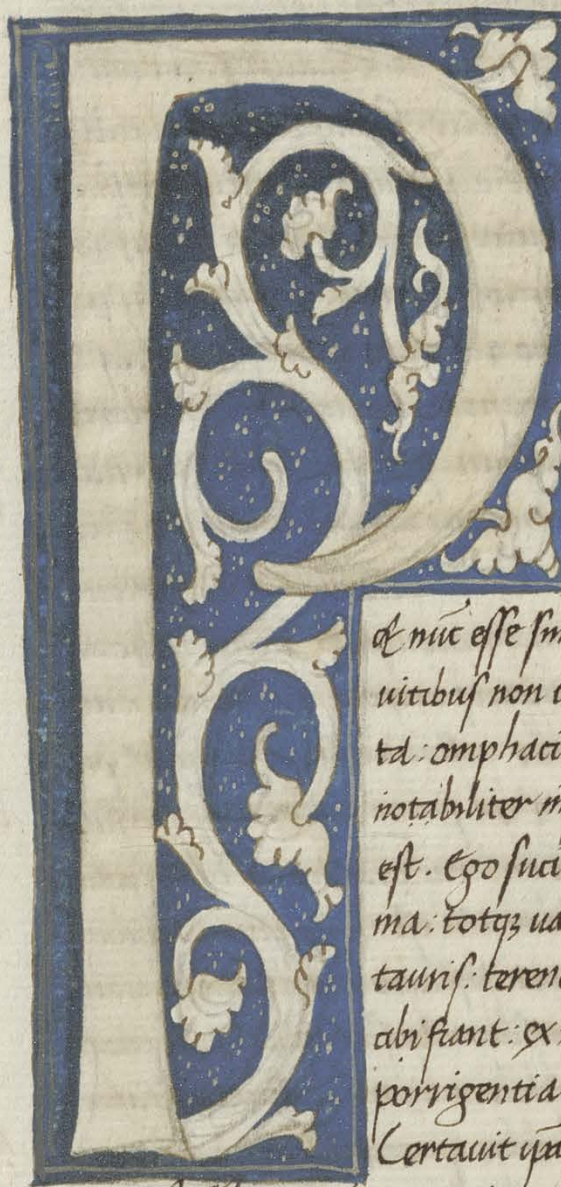 P
& nūc esse sm
uitibus non
ta: omphaci
notabiliter
est. Ego suci
ma: totq; ua
tauris: teren
cibi fiant: ex
porrigentia
Certauit